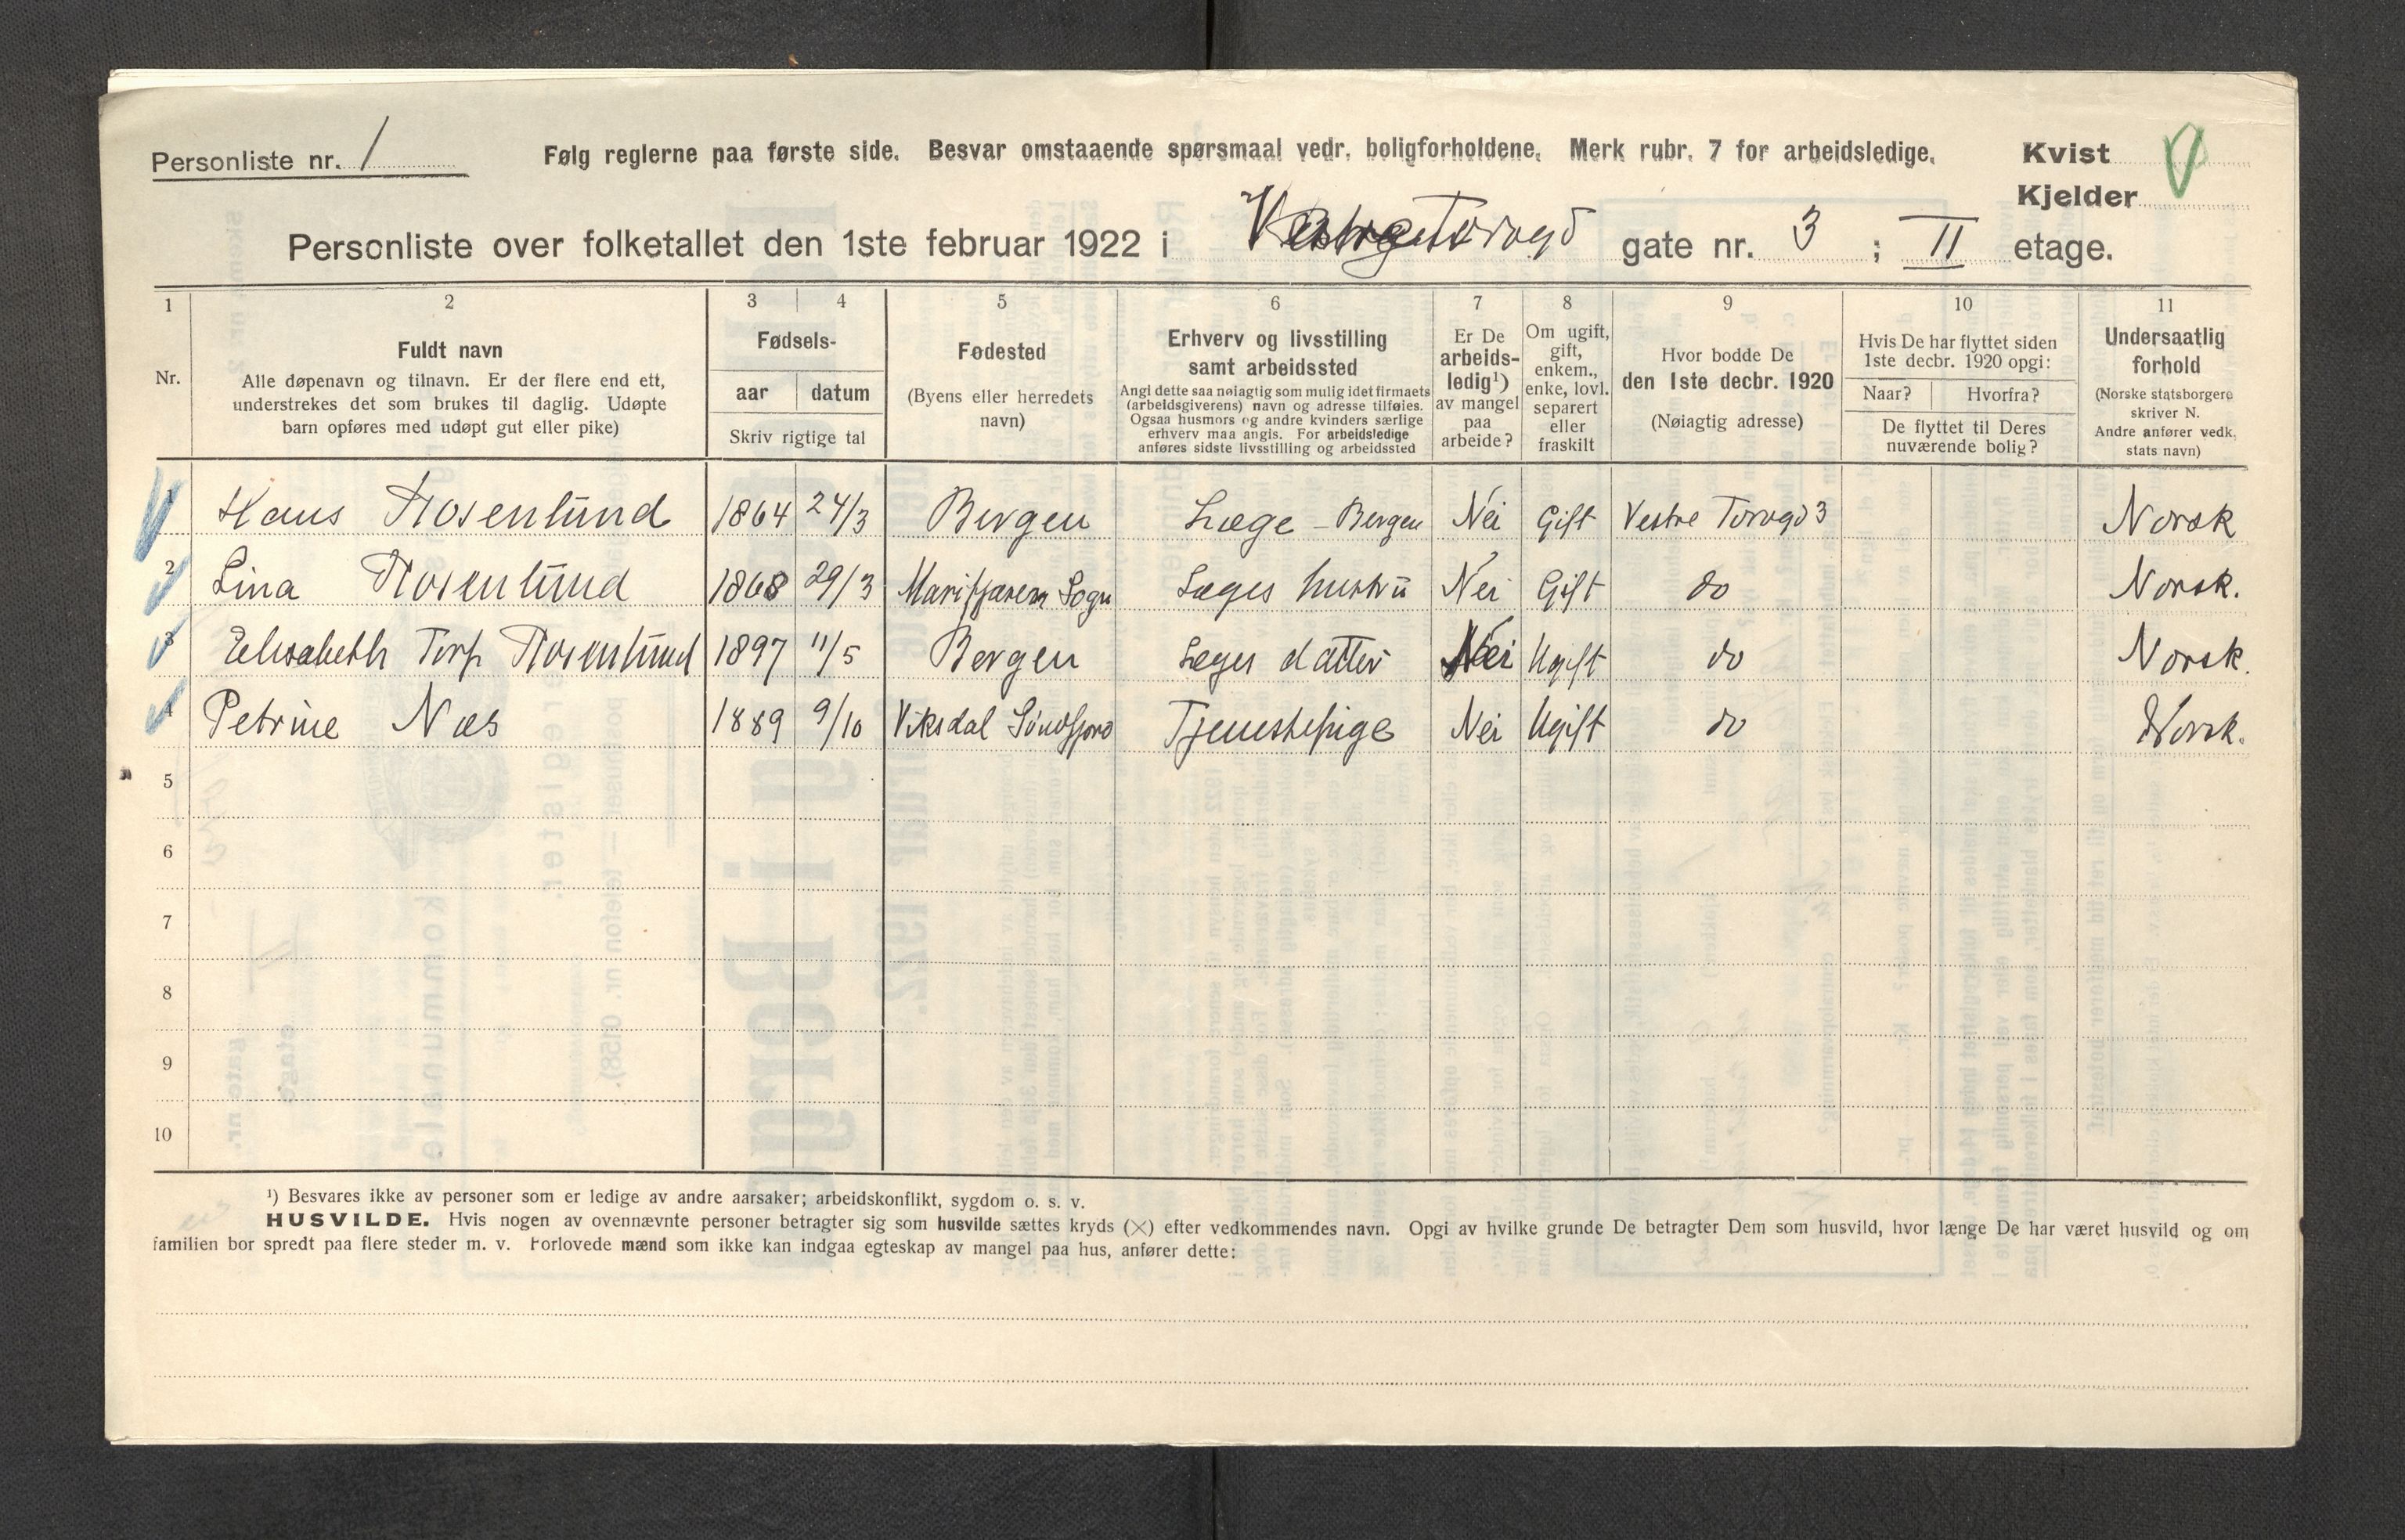 Personliste nr. 1
Følg reglerne paa første side. Besvar omstaaende spørsmaal vedr. boligforholdene. Merk rubr. 7 for arbeidsledige.
Kvist
Kjelder
Personliste over folketallet den 1ste februar 1922 i Vestre Torvgd gate nr. 3 ; II etage.
1 2 3 4 5 6 7 8 9 10 11
Nr.
Fuldt navn
Alle døpenavn og tilnavn. Er der flere end ett,
understrekes det som brukes til daglig. Udøpte
barn opføres med udøpt gut eller pike)
Fødsels-
aar datum
Skriv rigtige tal
Fødested
(Byens eller herredets
navn)
Erhverv og livsstilling
samt arbeidssted
Angi dette saa nøiagtig som mulig idet firmaets
(arbeidsgiverens) navn og adresse tilføies.
Ogsaa husmors og andre kvinders særlige
erhverv maa angis. For arbeidsledige
anføres sidste livsstilling og arbeidssted
Er De
arbeids-
ledig¹)
av mangel
paa
arbeide?
Om ugift,
gift,
enkem.,
enke, lovl.
separert
eller
fraskilt
Hvor bodde De
den 1ste decbr. 1920
(Nøiagtig adresse)
Hvis De har flyttet siden
1ste decbr. 1920 opgi:
Naar? Hvorfra?
De flyttet til Deres
nuværende bolig?
Undersaatlig
forhold
(Norske statsborgere
skriver N.
Andre anfører vedk.
stats navn)
1 Hans Rosenlund 1864 24/3 Bergen Læge - Bergen Nei Gift Vestre Torvgd 3 Norsk
2 Lina Rosenlund 1868 29/3 Marifjæren Sogn Læges hustru Nei Gift do Norsk.
3 Elisabeth Torp Rosenlund 1897 11/5 Bergen Læges datter Nei Ugift do Norsk.
4 Petrine Næs 1889 9/10 Viksdal Søndfjord Tjenestepige Nei Ugift do Norsk.
5
6
7
8
9
10
¹) Besvares ikke av personer som er ledige av andre aarsaker; arbeidskonflikt, sygdom o. s. v.
HUSVILDE. Hvis nogen av ovennævnte personer betragter sig som husvilde sættes kryds (×) efter vedkommendes navn. Opgi av hvilke grunde De betragter Dem som husvild, hvor længe De har været husvild og om
familien bor spredt paa flere steder m. v. Forlovede mænd som ikke kan indgaa egteskap av mangel paa hus, anfører dette: